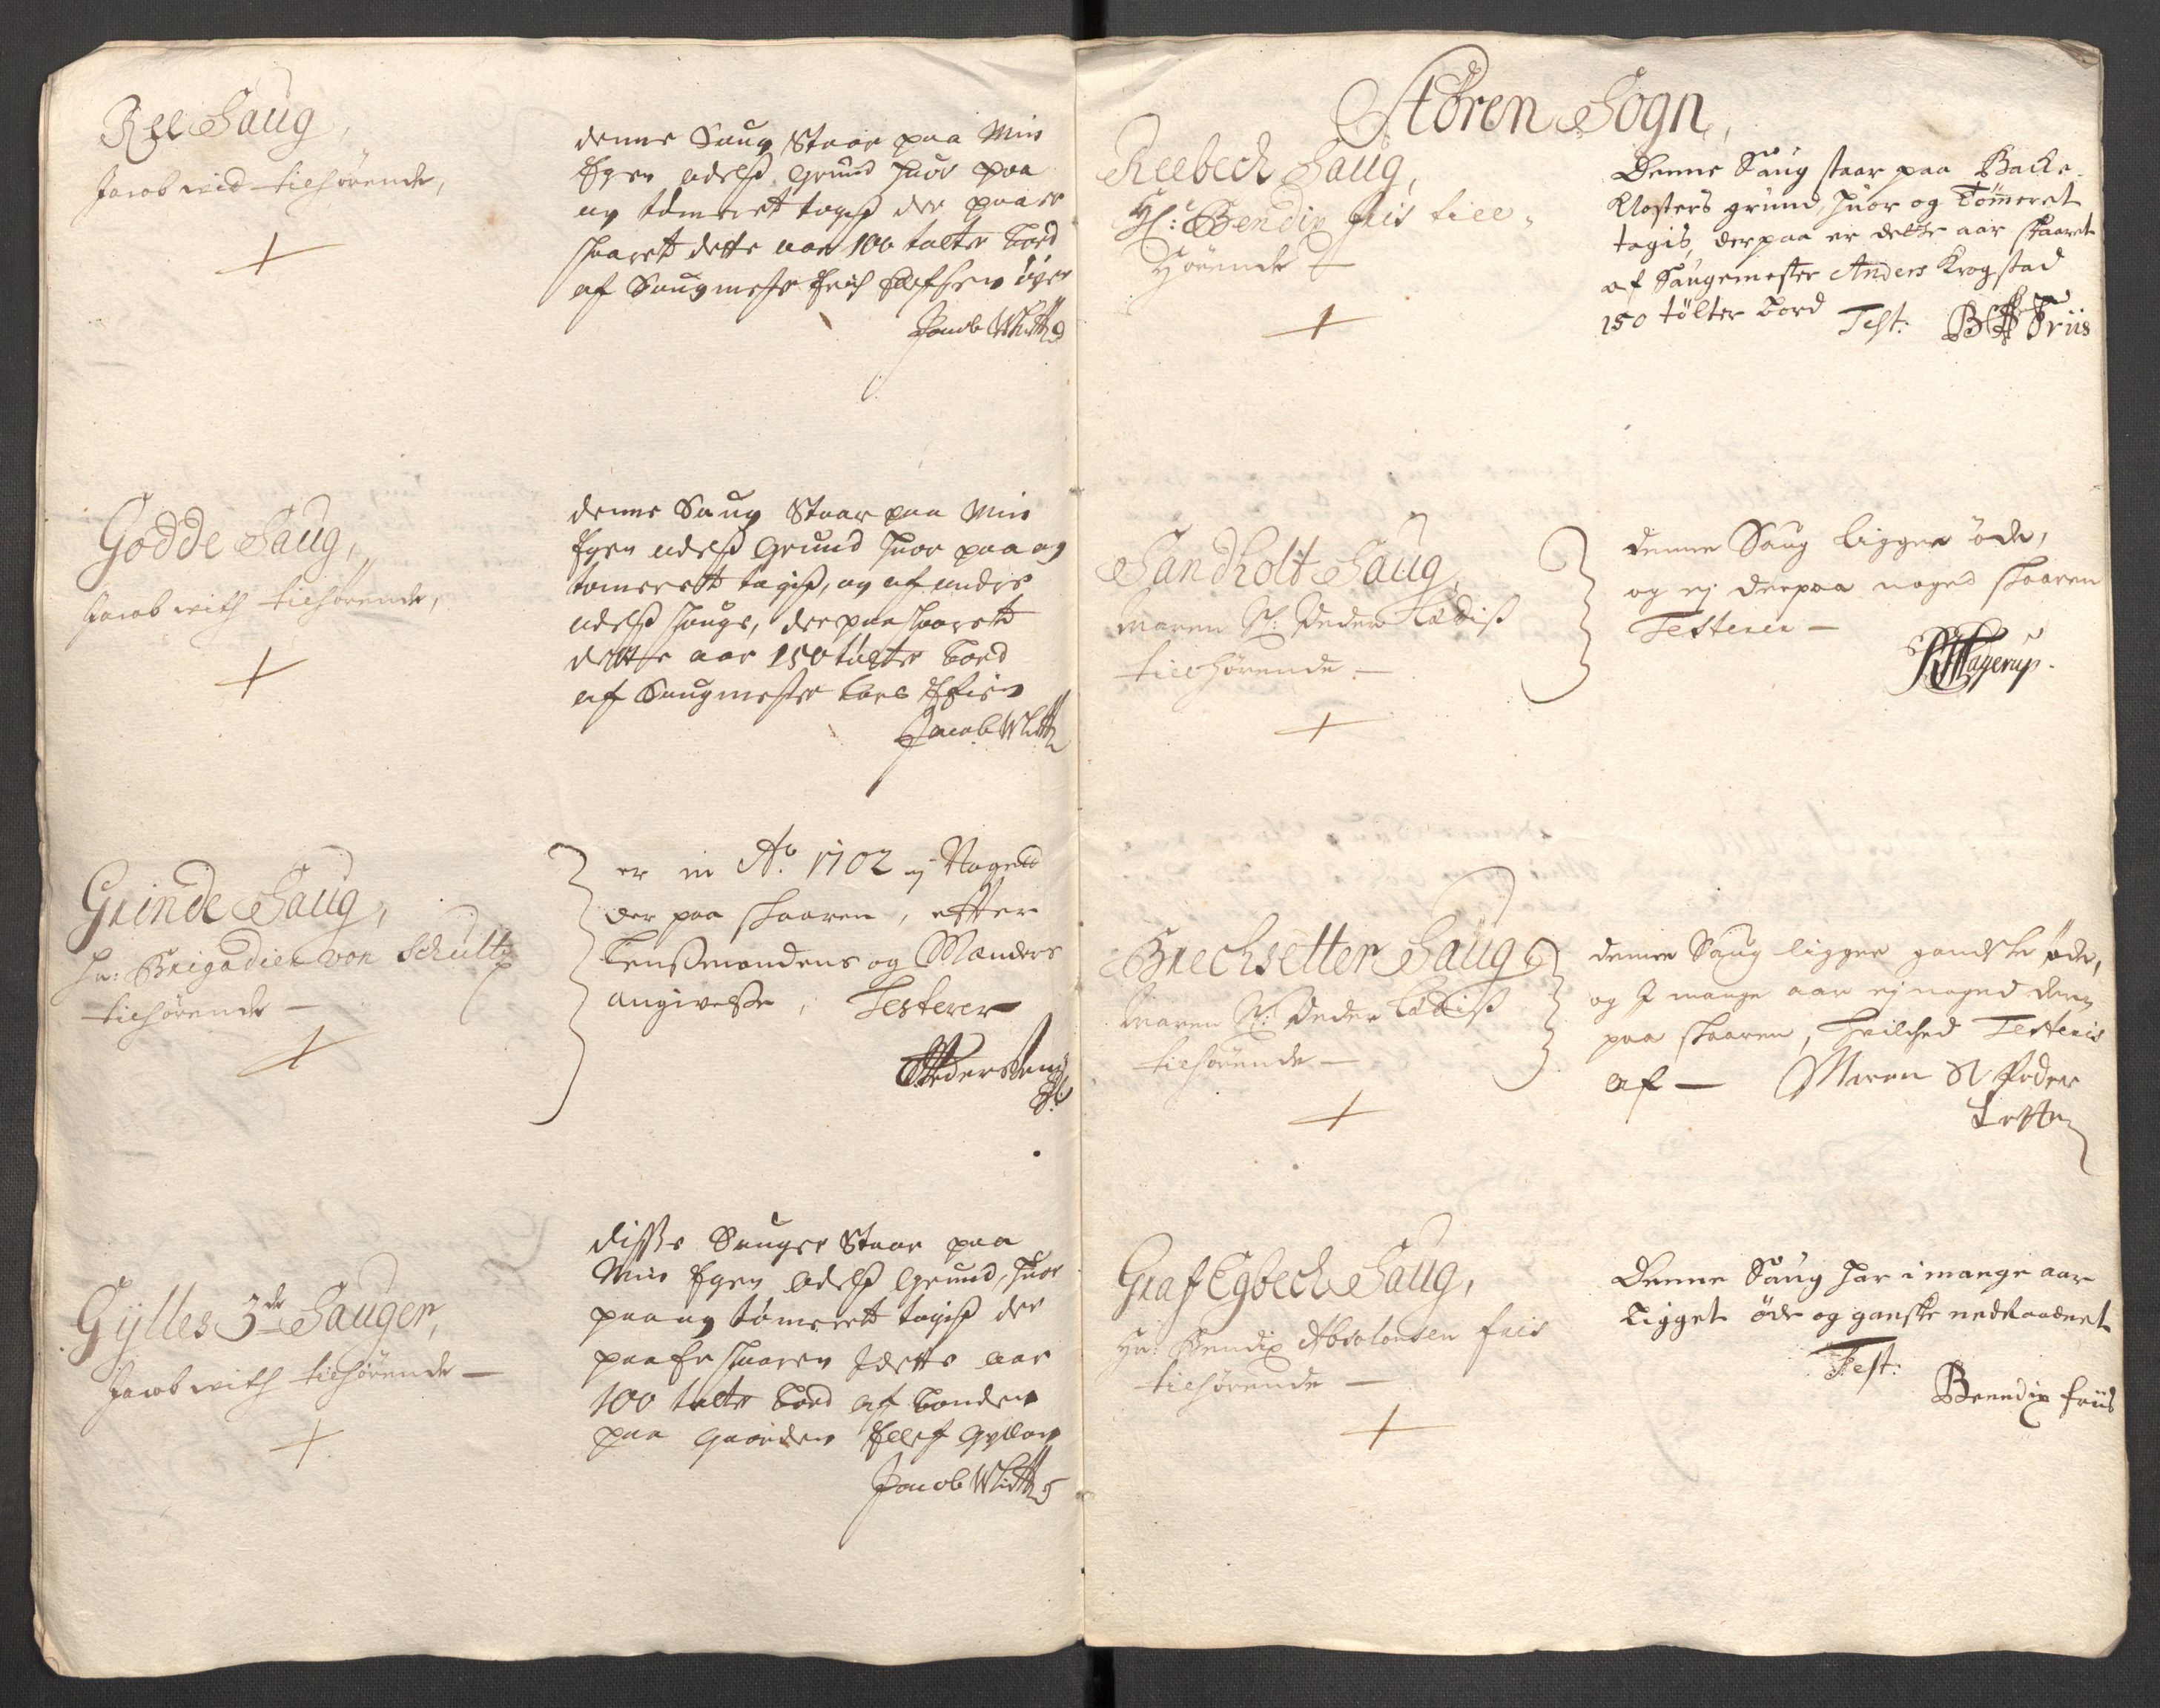 Ree Saug,
Jacob wid tilhørende,
denne Saug Staar paa Min
Egen adelss Grund huor paa
og tömerett tagiss der paa er
skaarett dette aar 100 tolter bord
af Saugmester Erich
Jacob Whitte
Godde Saug,
Jacob with tilhørende,
denne Saug Staar paa Min
Egen adelss Grund huor paa og
tomerett tagiss, og af andre
adelss skouge, der paa skaarett
dette aar 150 tolter bord
af Saugmester Lars
Jacob Whitte
Grinde Saug,
Hr: Brigadier von Schultz
tilhørende —
er in Ao. 1702 ej Naget
der paa skaaren, efter
Lenssmandens og Manders
angivelsse, Testerer
Pedersen
Gylles 3de Sauger,
Jacob with tilhørende —
disse Sauger Staar paa
Min Egen Adelss Grund, huor
paa og tömerett tagiss der
paa er skaaren Idette aar
100 tolter bord af bonden
paa Gaarden Ellef Gyllan
Jacob Whitte
Støren Sogn,
Reebech Saug,
Hr: Bendix friis till-
Hørende —
Denne Saug staar paa Backe
Klosters grund, huor og Tömeret
tagis, der paa er dette aar skaaret
af Saugemester Anders Krogstad
150 tölter bord Test: B A Friis
Sandholt Saug,
Maren Sl: Peder
tilhørende —
denne Saug ligger öde,
og ej derpaa noged skaaren
Testerer —
Hagerup.
Brechsetter Saug
Maren Sl: Peder
tilhørende —
denne Saug ligger gandske øde,
og I mange aar ej noged der
paa skaaren, hvilched Testeris
af — Maren Sl Peder
Graf Egbech Saug,
Hr: Bendix Absolonsen friis
tilhørende —
Denne Saug har i mange aar
Ligget öde og ganske nedraadnet
Test:
Benndix friis